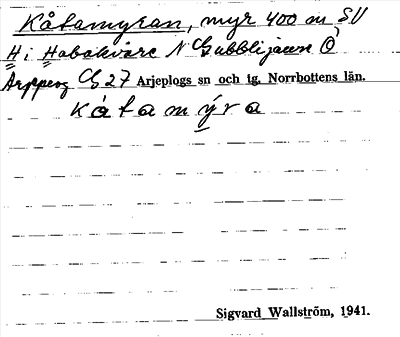 Kåtamyran, myr 400 m SV
H i Habakvare N Gubblijaure Ö
Arjeplog C 27 Arjeplogs sn och tg. Norrbottens län.
kåtamýra
Sigvard Wallström, 1941.